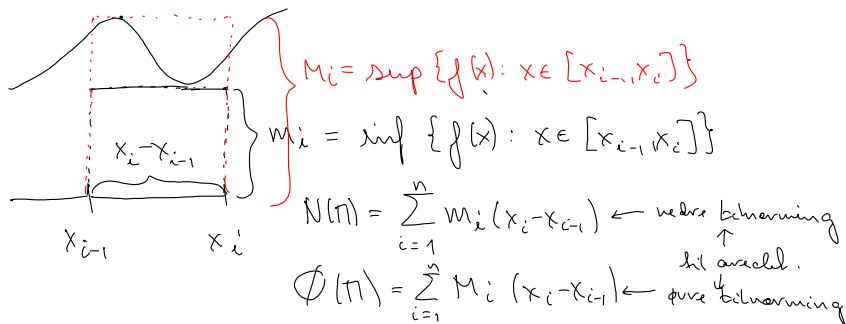 M_i = sup {f(x): x ∈ [x_{i-1}, x_i]}
x_i - x_{i-1}
m_i = inf {f(x): x ∈ [x_{i-1}, x_i]}
N(Π) = ∑_{i=1}^{n} m_i (x_i - x_{i-1}) ← nedre tilnærming
x_{i-1} x_i
til arealet.
Ø(Π) = ∑_{i=1}^{n} M_i (x_i - x_{i-1}) ← øvre tilnærming